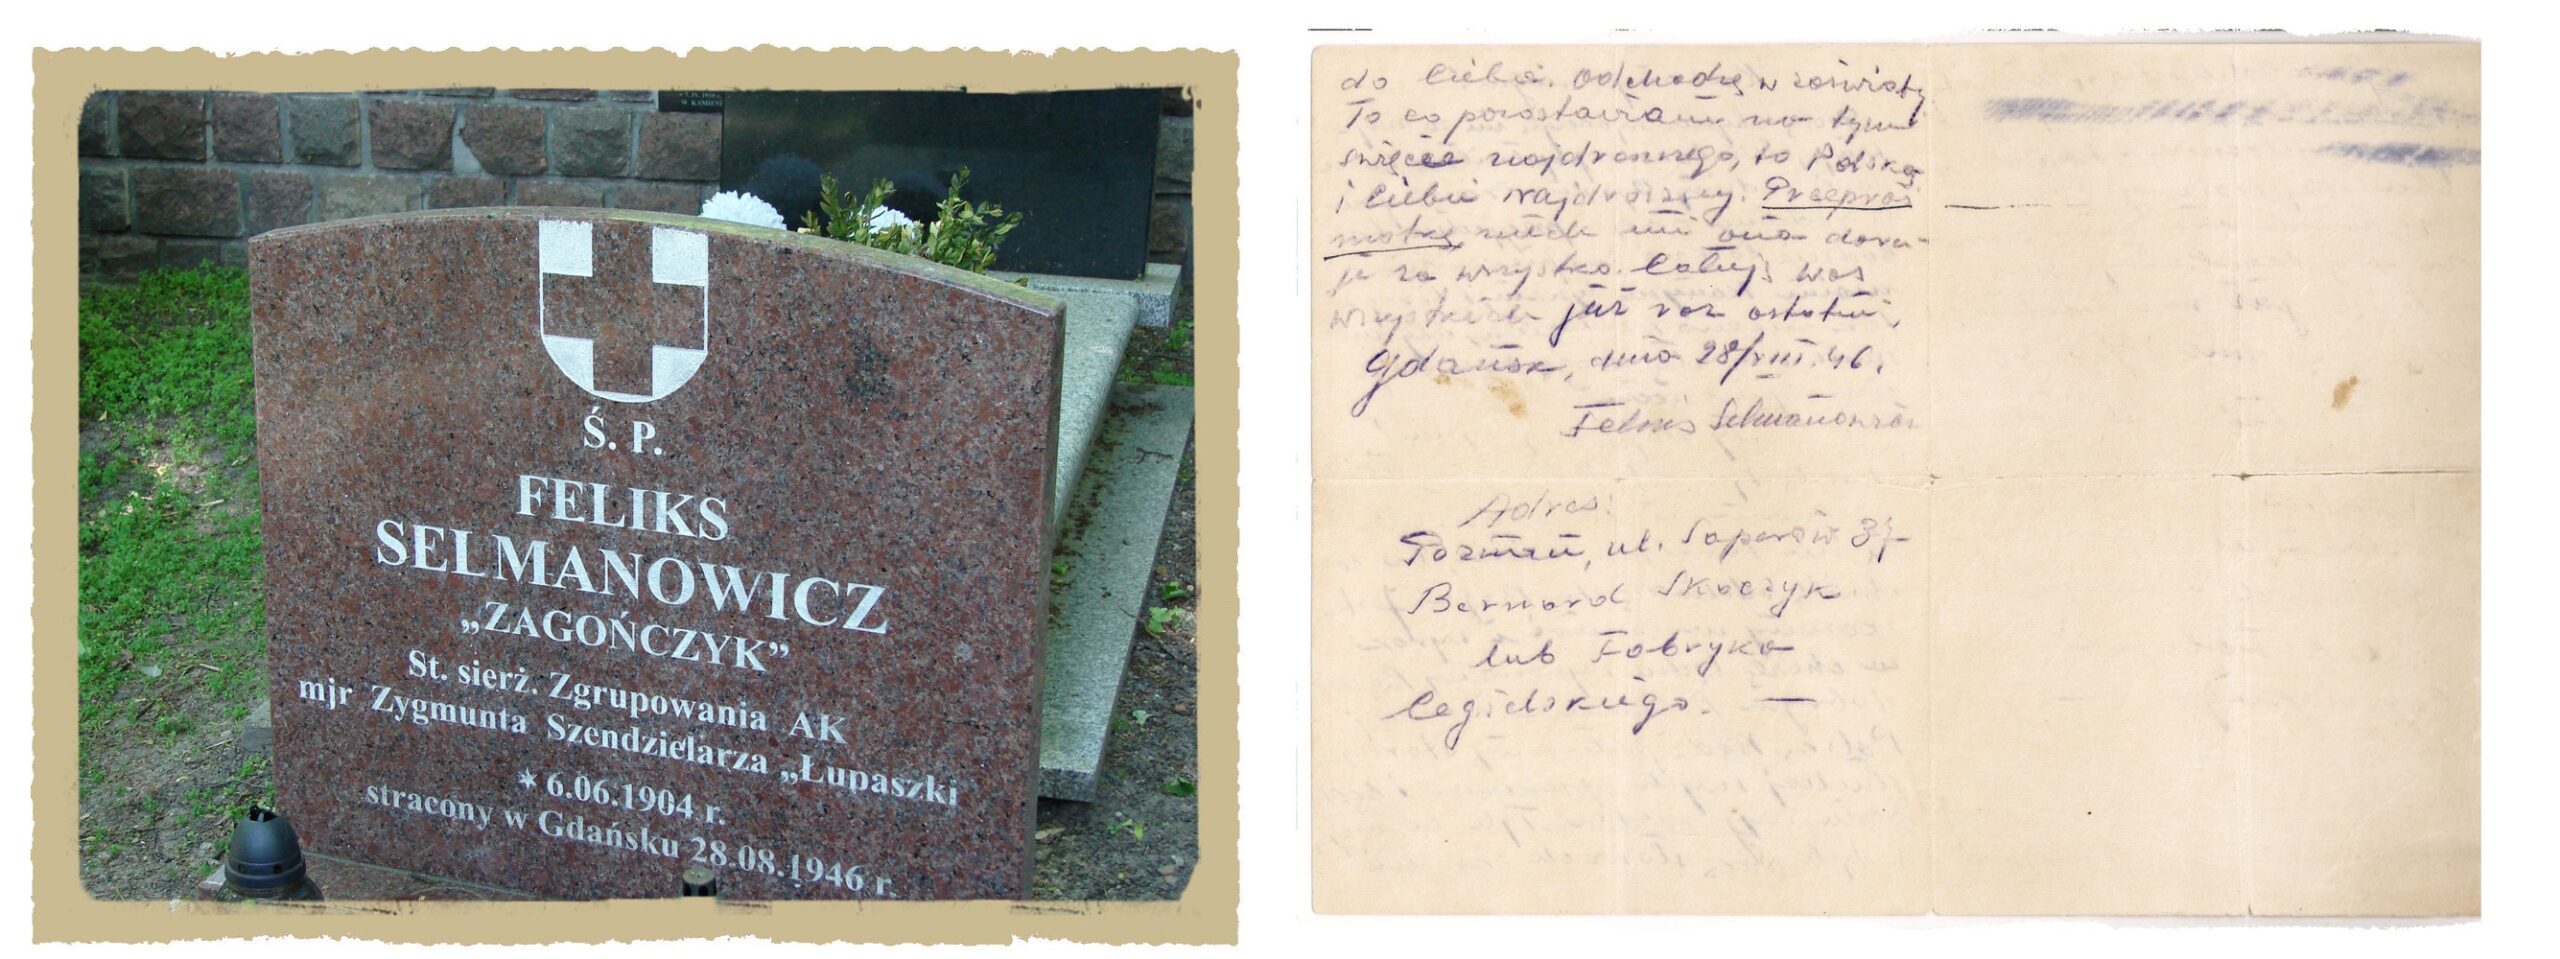 W KAMIENI
Ś. P.
FELIKS
SELMANOWICZ
„ZAGOŃCZYK”
St. sierż. Zgrupowania AK
mjr Zygmunta Szendzielarza „Łupaszki
* 6.06.1904 r.
stracony w Gdańsku 28.08.1946 r.
do Ciebie. Odchodzę w zaświaty
To co pozostawiam na tym
świecie najdroższego, to Polskę
i Ciebie najdroższy. Przeproś
matkę niech mi ona daru-
je za wszystko. Całuję was
wszystkich już raz ostatni,
Gdańsk, dnia 28/VIII.46.
Feliks Selmanowicz
Adres:
Poznań, ul. Saperów
Bernard Skoczyk
lub Fabryka
Cegielskiego. —